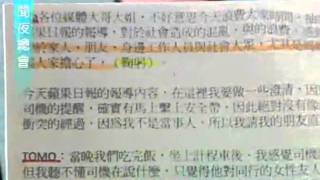 聞夜總會
各位媒體大哥大姐，不好意思今天浪費大家時間，
果日報的報導，對於社會造成的混亂，與的浪費，
於家人，朋友，身邊工作人員與社會大眾，尤其是
大家擔心了，（鞠躬）
今天蘋果日報的報導內容，在這裡我要做一些澄清，因
司機的提醒，確實有馬上繫上安全帶，因此絕對沒有像
衝突的經過，因為我不是當事人，所以我請我的朋友直
TOMO：當晚我們吃完飯，坐上計程車後，我感覺司機
但我聽不懂司機在說什麼，只覺得他對同行的女性友人